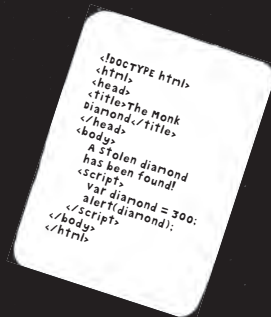 <!DOCTYPE html>
<html>
<head>
<title>The Monk
Diamond</title>
</head>
<body>
A stolen diamond
has been found!
<script>
var diamond = 300;
alert(diamond);
</script>
</body>
</html>